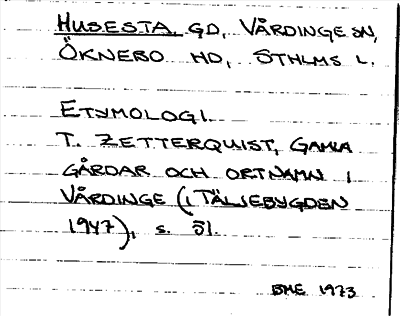 HUSESTA GD, VÅRDINGE SN,
ÖKNEBO HD, STHLMS L.
ETYMOLOGI.
T. ZETTERQUIST, GAMLA
GÅRDAR OCH ORTNAMN I
VÅRDINGE (I TÄLJEBYGDEN
1947), s. 51.
BME 1973